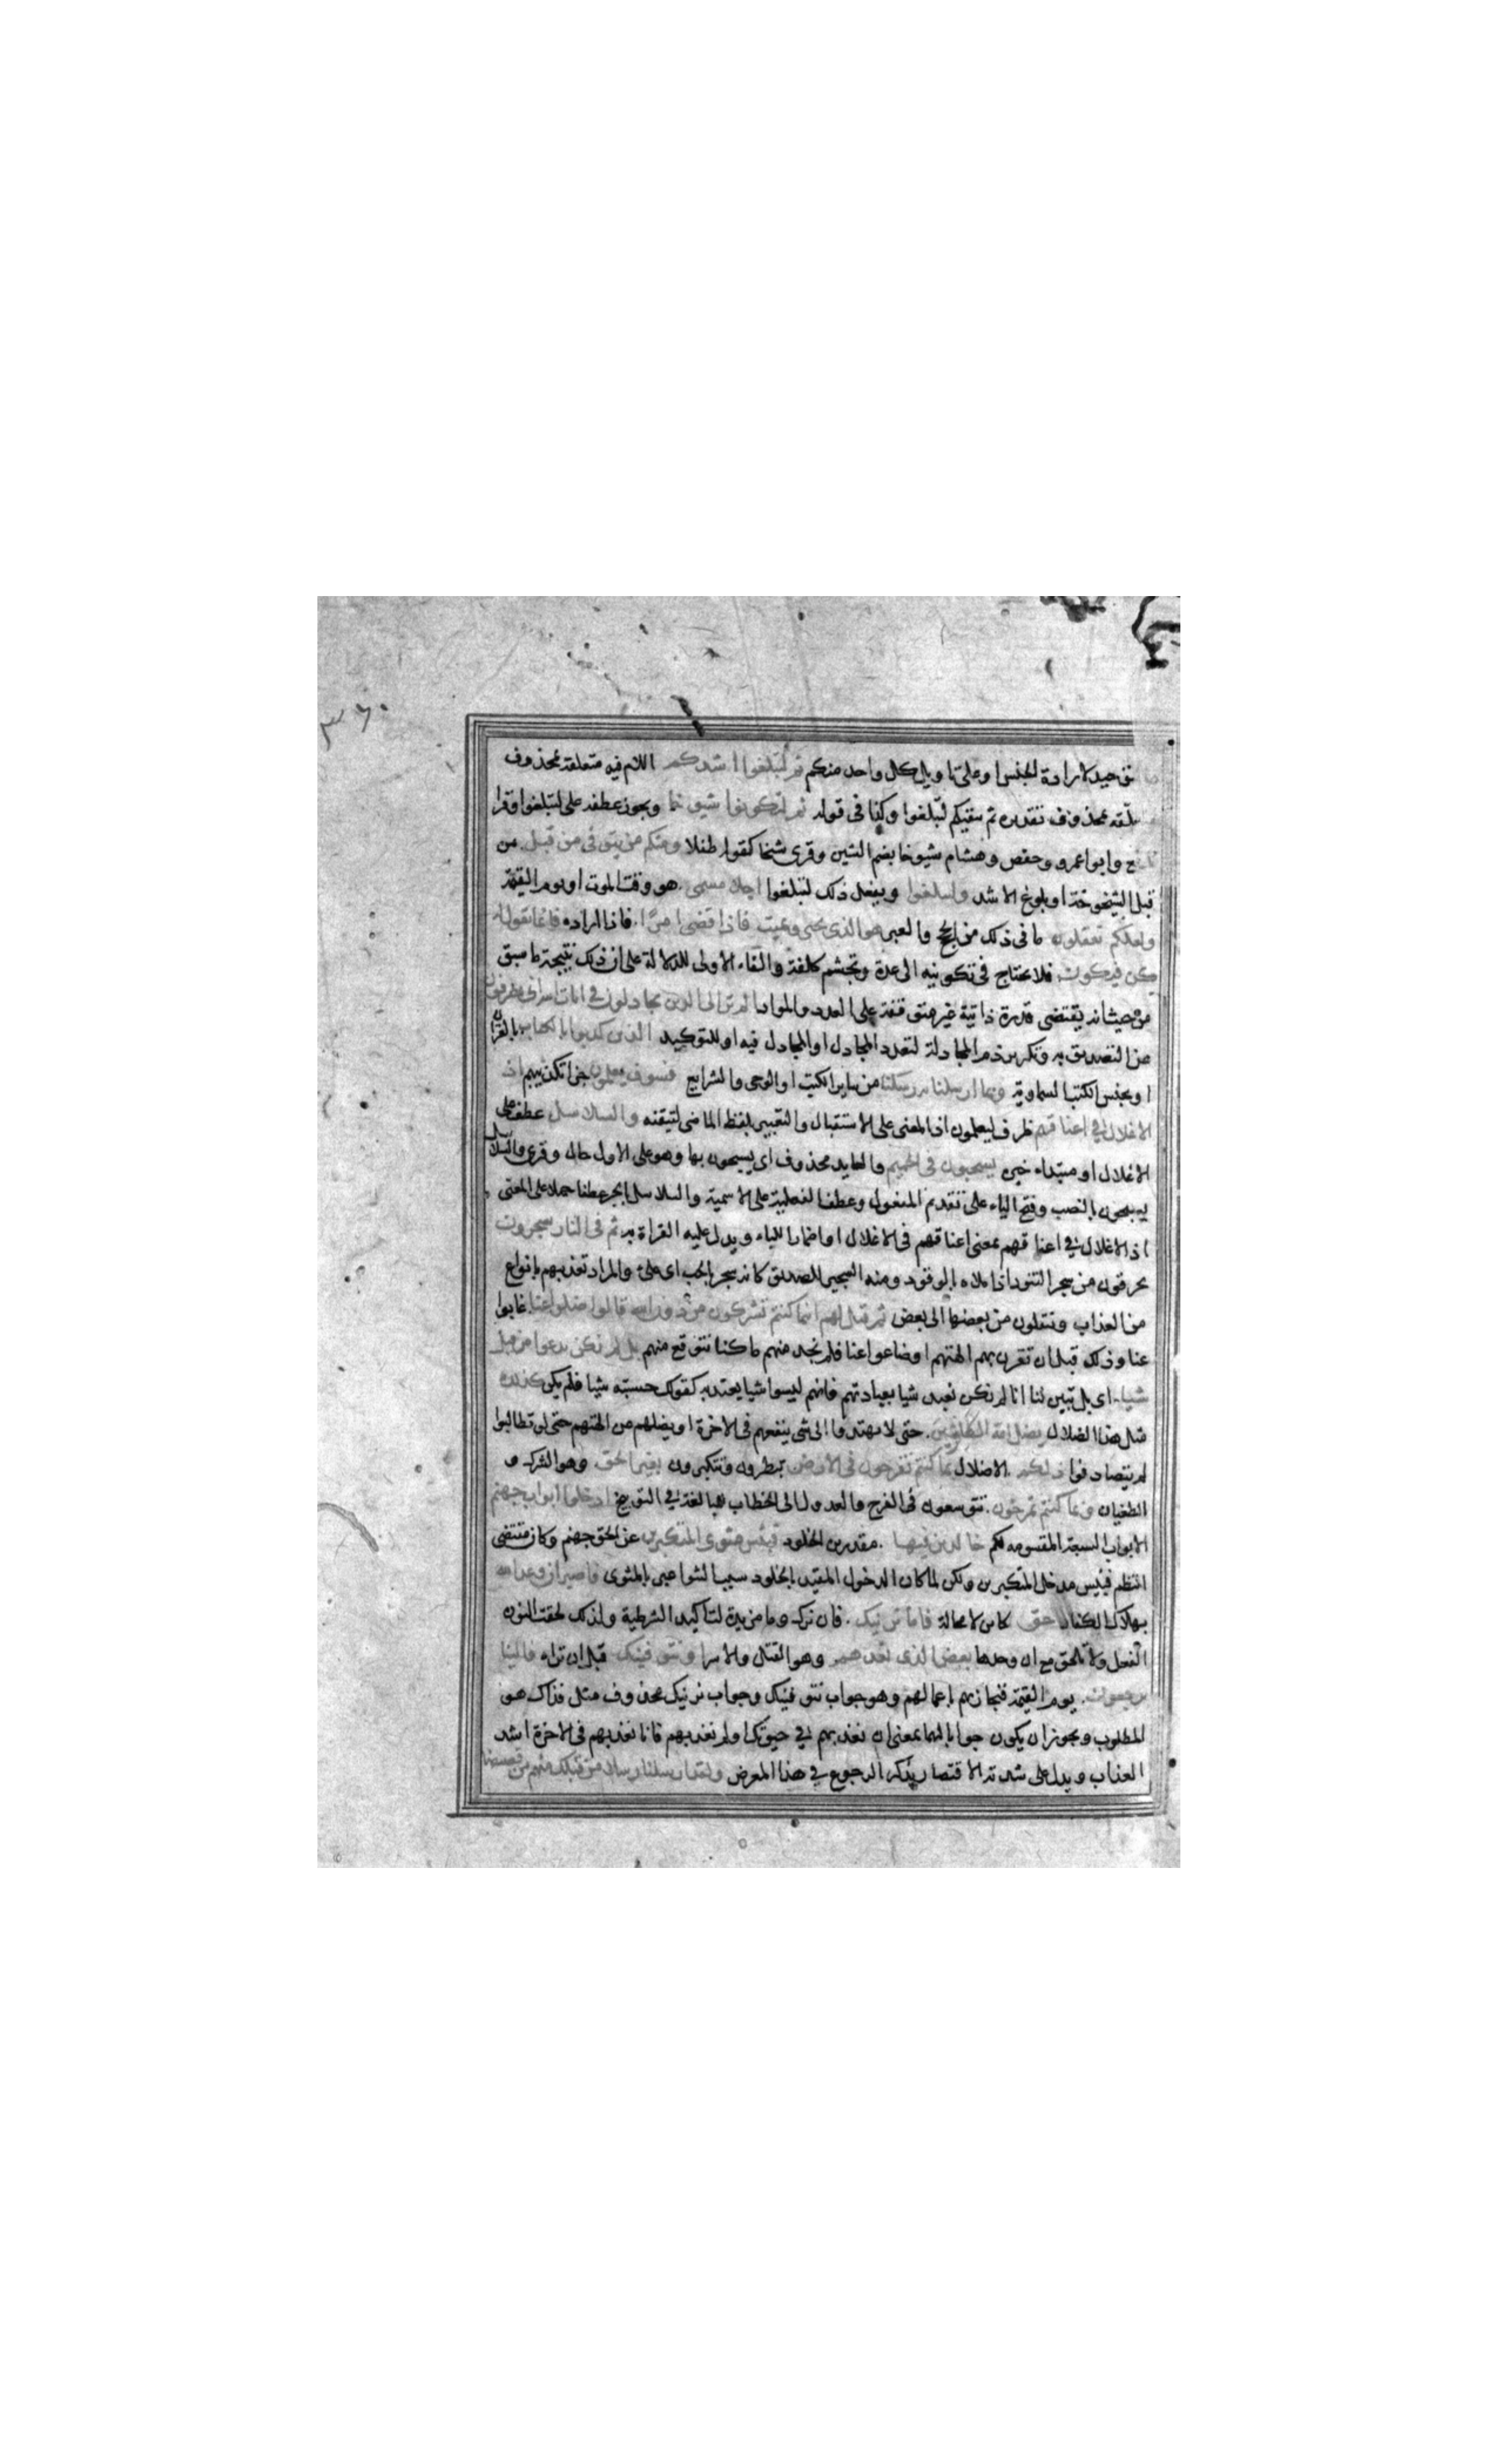 ٣٦٠
توحيد لارادة الجنس او على تاويل كل واحد منكم ثم لتبلغوا اشدكم اللام فيه متعلقة بمحذوف
بمحذوف تقديره ثم يبقيكم لتبلغوا وكذا فى قوله ثم لتكونوا شيوخا ويجوز عطفه على لتبلغوا وقرا
نافع وابو اعمرو وحفص وهشام شيوخا بضم الشين وقرى شيخا كقوله طفلا ومنكم من يتوفى من قبل من
قبل الشيخوخة او بلوغ الاشد ولتبلغوا ويفعل ذلك لتبلغوا اجلا مسمى هو وقت الموت او يوم القيمة
ولعلكم تعقلون ما فى ذلك من الحجج والعبر هو الذى يحيى ويميت فاذا قضى امرًا فاذا اراده فانما يقول له
كن فيكون فلا يحتاج فى تكوينه الى عدة وتجشم كلفة والفاء الاولى للدلالة على ان ذلك نتيجة ما سبق
من حيث انه يقتضى قدرة ذاتية غير متوقفة على العدد والمواد الم تر الى الذين يجادلون فى ايات الله انى يصرفون
عن التصديق به وتكرير ذم المجادلة لتعدد المجادل او المجادل فيه او للتوكيد الذين كذبوا بالكتاب بالقران
او بجنس الكتب السماوية وبما ارسلنا به رسلنا من ساير الكتب او الوحى والشرايع فسوف يعلمون جزا تكذيبهم اذ
الاغلال فى اعناقهم ظرف ليعلمون اذ المعنى على الاستقبال والتعبير بلفظ الماضى لتيقنه والسلاسل عطف على
الاغلال او مبتداء خبره يسحبون فى الحميم والعايد محذوف اى يسحبون بها وهو على الاول حال وقرى والسلاسل
يسحبون بالنصب وفتح الياء على تقديم المفعول وعطف الفعلية على الاسمية والسلاسل بالجر عطفا حملا على المعنى
اذ الاغلال فى اعناقهم بمعنى اعناقهم فى الاغلال او اضمارا للباء ويدل عليه القراة به ثم فى النار يسجرون
يحرقون من سجر التنور اذا ملاه بالوقود ومنه السجير للصديق كانه سجر بالحب اى ملئ والمراد تعذيبهم بانواع
من العذاب وينقلون من بعضها الى بعض ثم قيل لهم اينما كنتم تشركون من دون الله قالوا ضلوا عنا غابوا
عنا وذلك قبل ان تقرن بهم الهتهم او ضاعوا عنا فلم نجد منهم ما كنا نتوقع منهم بل لم نكن ندعوا من قبل
شيئا اى بل تبين لنا انا لم نكن نعبد شيا بعبادتهم فانهم ليسوا شيا يعتد به كقولك حسبته شيا فلم يكن كذلك
مثل هذا الضلال يضل الله الكافرين حتى لا يهتدوا الى شى ينفعهم فى الاخرة او يضلهم عن الهتهم حتى لو تطالبوا
لم يتصادفوا ذلكم الاضلال بما كنتم تفرحون فى الارض تبطرون وتتكبرون بغير الحق وهو الشرك و
الطغيان وبما كنتم تمرحون تتوسعون فى الفرح والعدول الى الخطاب للمبالغة فى التوبيخ ادخلوا ابواب جهنم
الابواب السبعة المقسومه لكم خالدين فيها مقدرين الخلود فبئس مثوى المتكبرين عن الحق جهنم وكان مقتضى
النظم فبئس مدخل المتكبرين ولكن لما كان الدخول المقيد بالخلود سببا لثوا عبر بالمثوى فاصبر ان وعد الله
بهلاك الكفار حق كاين لا محالة فاما نرينك فان نرك وما مزيدة لتاكيد الشرطية ولذلك لحقت النون
الفعل ولا تلحق مع ان وحدها بعض الذى نعدهم وهو القتل والاسر او نتوفينك قبل ان تراه فالينا
يرجعون يوم القيمة فنجازيهم باعمالهم وهو جواب نتوفينك وجواب نرينك محذوف مثل فذاك هو
المطلوب ويجوز ان يكون جوابا لهما بمعنى ان نعذبهم فى حيوتك او لم نعذبهم فانا نعذبهم فى الاخرة اشد
العذاب ويدل على شدته الاقتصار بذكر الرجوع فى هذا المعرض ولقد ارسلنا رسلا من قبلك منهم من قصصنا